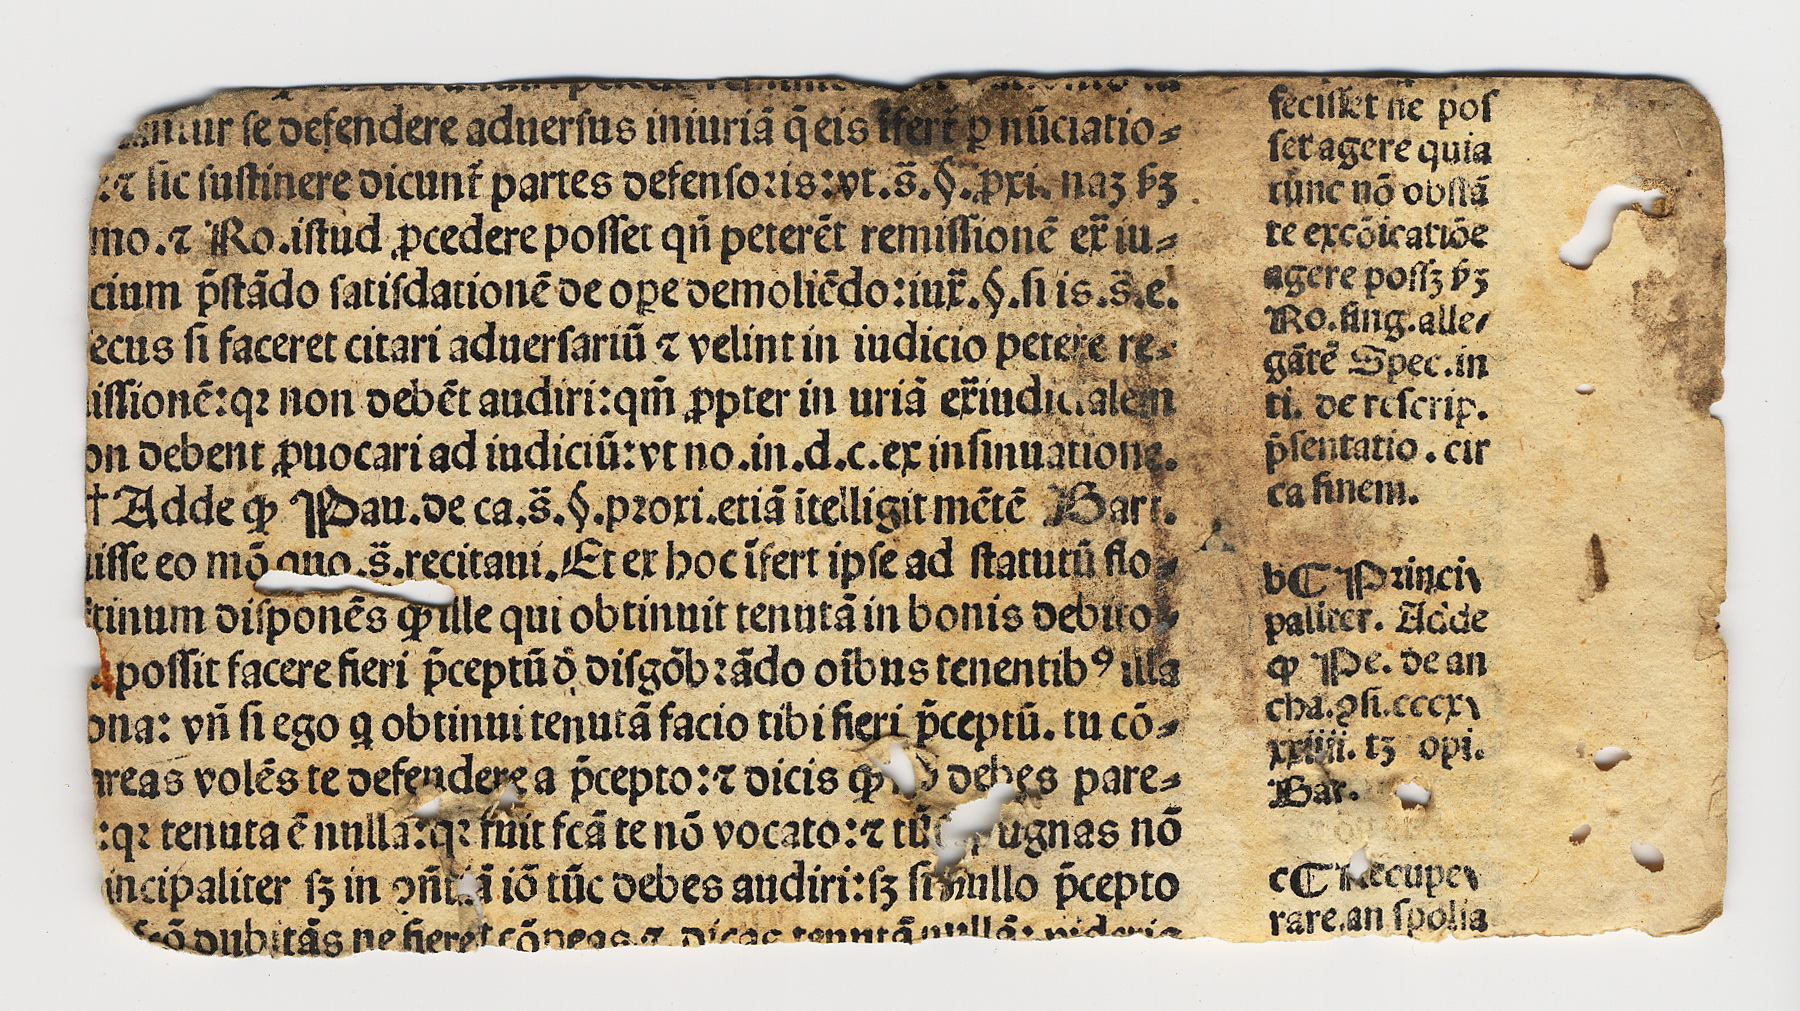 se defendere aduersus iniuriã q̃ eis ĩfert̃ ꝑ nũciatio⸗
⁊ sic sustinere dicunt̃ partes defensoꝛis: vt.s̃.§.ꝓxi. naꝫ ẜꝫ
mo.⁊ Ro.istud ꝓcedere posset qñ peterẽt remissionẽ ex̃ iu⸗
cium p̃stãdo satisdationẽ de oꝑe demoliẽdo:iux̃.§.si is.s̃.e.
ecus si faceret citari aduersariũ ⁊ velint in iudicio petere re⸗
issionẽ:qꝛ non debẽt audiri:qm̃ ꝓpter in uriã ex̃iudicialem
on debent ꝓuocari ad iudiciũ:vt no.in.d.c.ex insinuatione.
† Adde ꝙ Pau.de ca.s̃.§.pꝛoxi.etiã ĩtelligit mẽtẽ Bart.
uisse eo mõ quo.s̃.recitaui.Et ex hoc ĩfert ipse ad statutũ flo⸗
tinum disponẽs ꝙ ille qui obtinuit tenutã in bonis debito⸗
possit facere fieri p̃ceptũ õ disgõbꝛãdo oĩbus tenentibꝰ illa
ona: vñ si ego q obtinui tenutã facio tibi fieri p̃ceptũ. tu cõ⸗
areas volẽs te defendere a p̃cepto:⁊ dicis ꝙ debes pare⸗
:qꝛ tenuta ẽ nulla:qꝛ fuit fcã te nõ vocato:⁊ tũc pugnas nõ
incipaliter sꝫ in iõ tũc debes audiri:sꝫ si nullo p̃cepto
dubitãs ne fieret

fecisset ne pos
set agere quia
tunc nõ obstã
te excõicatiõe
agere possꝫ ẜꝫ
Ro.sing.alle⸗
gãtẽ Spec.in
ti. de rescrip.
p̃sentatio.cir
ca finem.
b⸿ Pꝛinci⸗
paliter. Adde
ꝙ Pe. de an
cha.ꝯsi.cccx⸗
xxiiii. tꝫ opi.
Bar.
c⸿ Recupe⸗
rare.an spolia